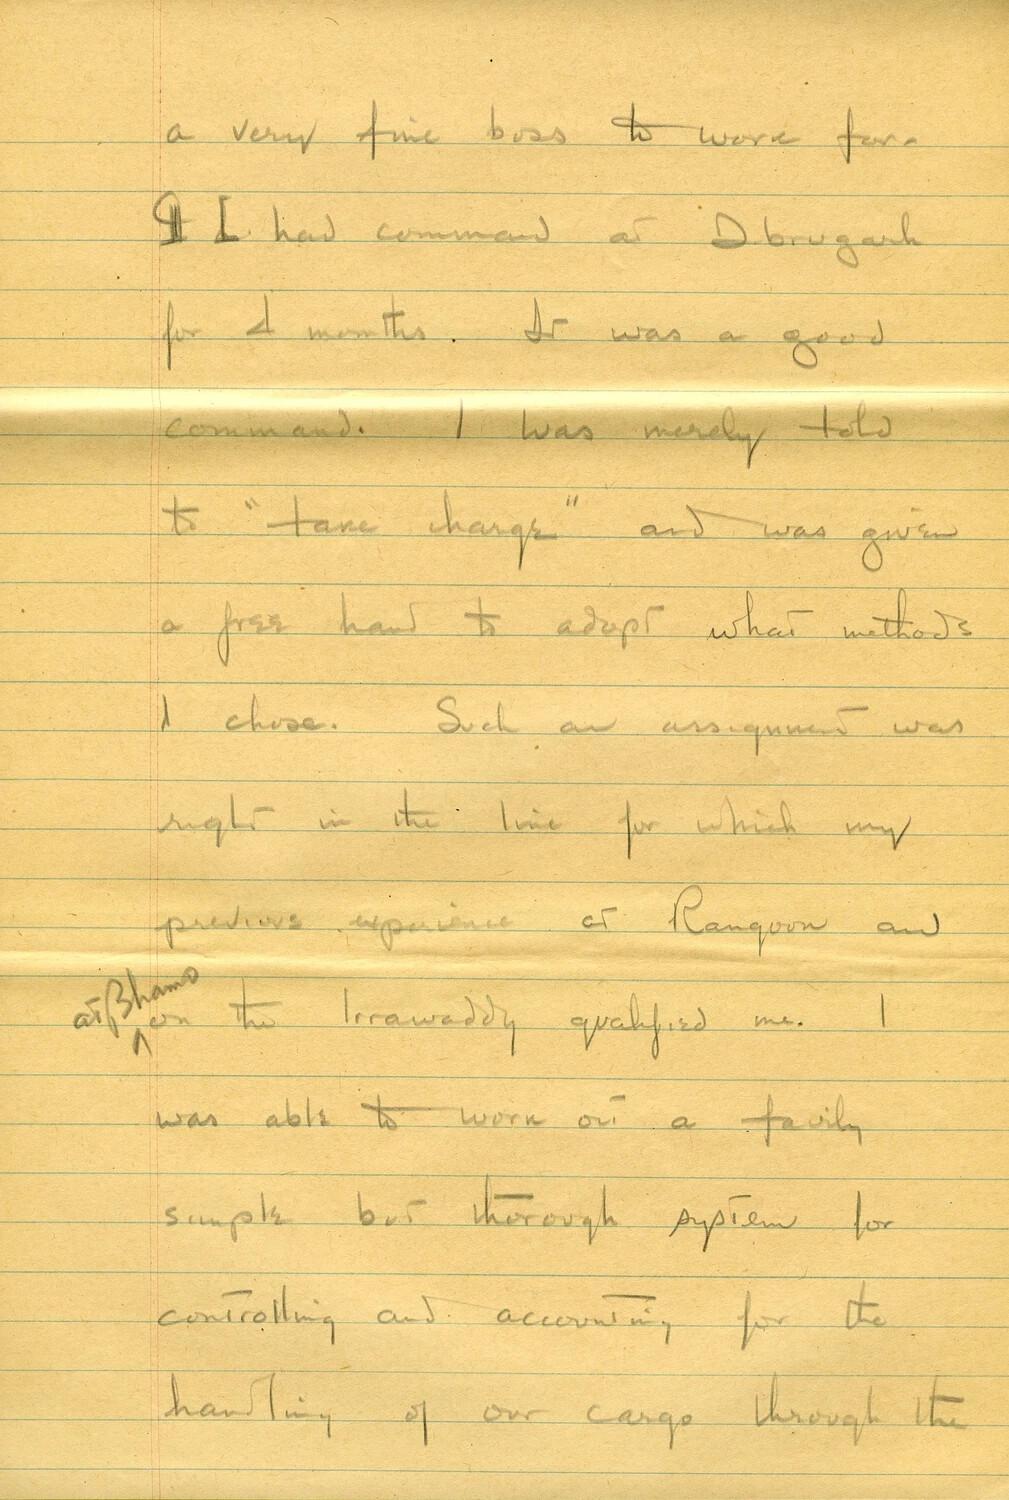 a very fine boss to work for.
I had command at Dbrugarh
for 4 months. It was a good
command. I was merely told
to "take charge" and was given
a free hand to adopt what methods
I chose. Such an assignment was
right in the line for which my
previous experience at Rangoon and
at Bhamo
on the Irrawaddy qualified me. I
was able to work out a fairly
simple but thorough system for
controlling and accounting for the
handling of our cargo through the